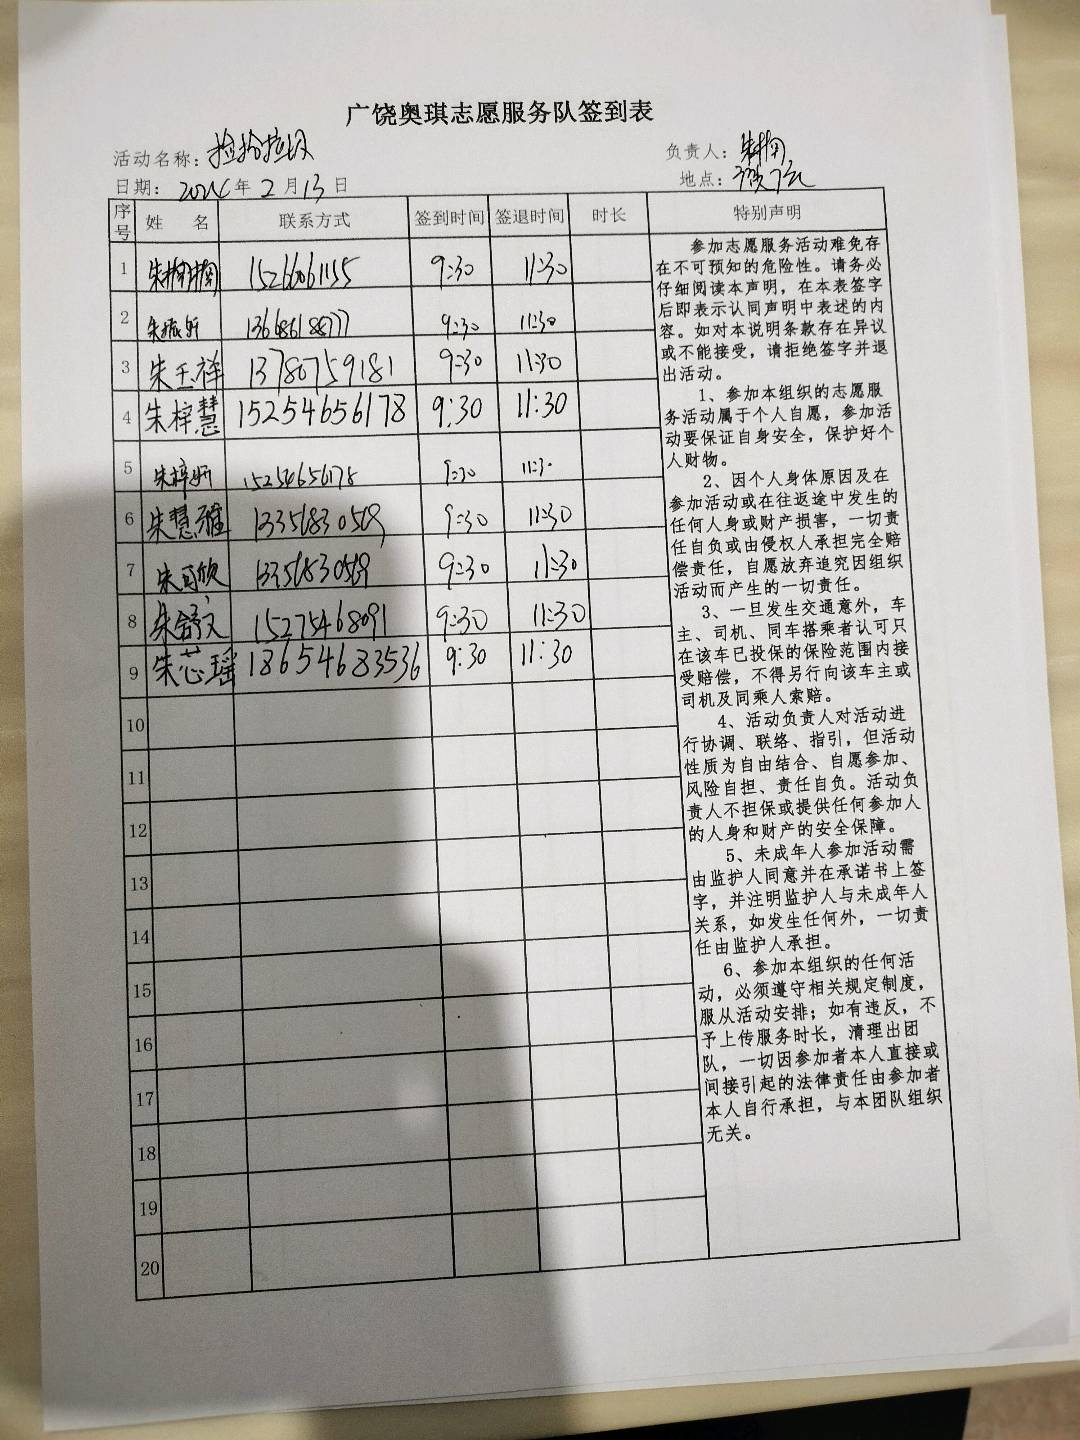 广饶奥琪志愿服务队签到表
活动名称：捡拾垃圾 负责人：
日期： 年 2 月 13 日 地点：
序号 姓 名 联系方式 签到时间 签退时间 时长 特别声明
1 15266061155 9:30 11:30
2 13668618877 9:30 11:30
3 朱玉祥 13780759181 9:30 11:30
4 朱梓慧 15254656178 9:30 11:30
5 朱梓妍 15254656178 9:30 11:30
6 朱慧雅 13356830569 9:30 11:30
7 朱可欣 13356830569 9:30 11:30
8 朱舒文 15275468091 9:30 11:30
9 朱芯瑶 18654683536 9:30 11:30
10
11
12
13
14
15
16
17
18
19
20
参加志愿服务活动难免存
在不可预知的危险性。请务必
仔细阅读本声明，在本表签字
后即表示认同声明中表述的内
容。如对本说明条款存在异议
或不能接受，请拒绝签字并退
出活动。
1、参加本组织的志愿服
务活动属于个人自愿，参加活
动要保证自身安全，保护好个
人财物。
2、因个人身体原因及在
参加活动或在往返途中发生的
任何人身或财产损害，一切责
任自负或由侵权人承担完全赔
偿责任，自愿放弃追究因组织
活动而产生的一切责任。
3、一旦发生交通意外，车
主、司机、同车搭乘者认可只
在该车已投保的保险范围内接
受赔偿，不得另行向该车主或
司机及同乘人索赔。
4、活动负责人对活动进
行协调、联络、指引，但活动
性质为自由结合、自愿参加、
风险自担、责任自负。活动负
责人不担保或提供任何参加人
的人身和财产的安全保障。
5、未成年人参加活动需
由监护人同意并在承诺书上签
字，并注明监护人与未成年人
关系，如发生任何外，一切责
任由监护人承担。
6、参加本组织的任何活
动，必须遵守相关规定制度，
服从活动安排；如有违反，不
予上传服务时长，清理出团
队，一切因参加者本人直接或
间接引起的法律责任由参加者
本人自行承担，与本团队组织
无关。